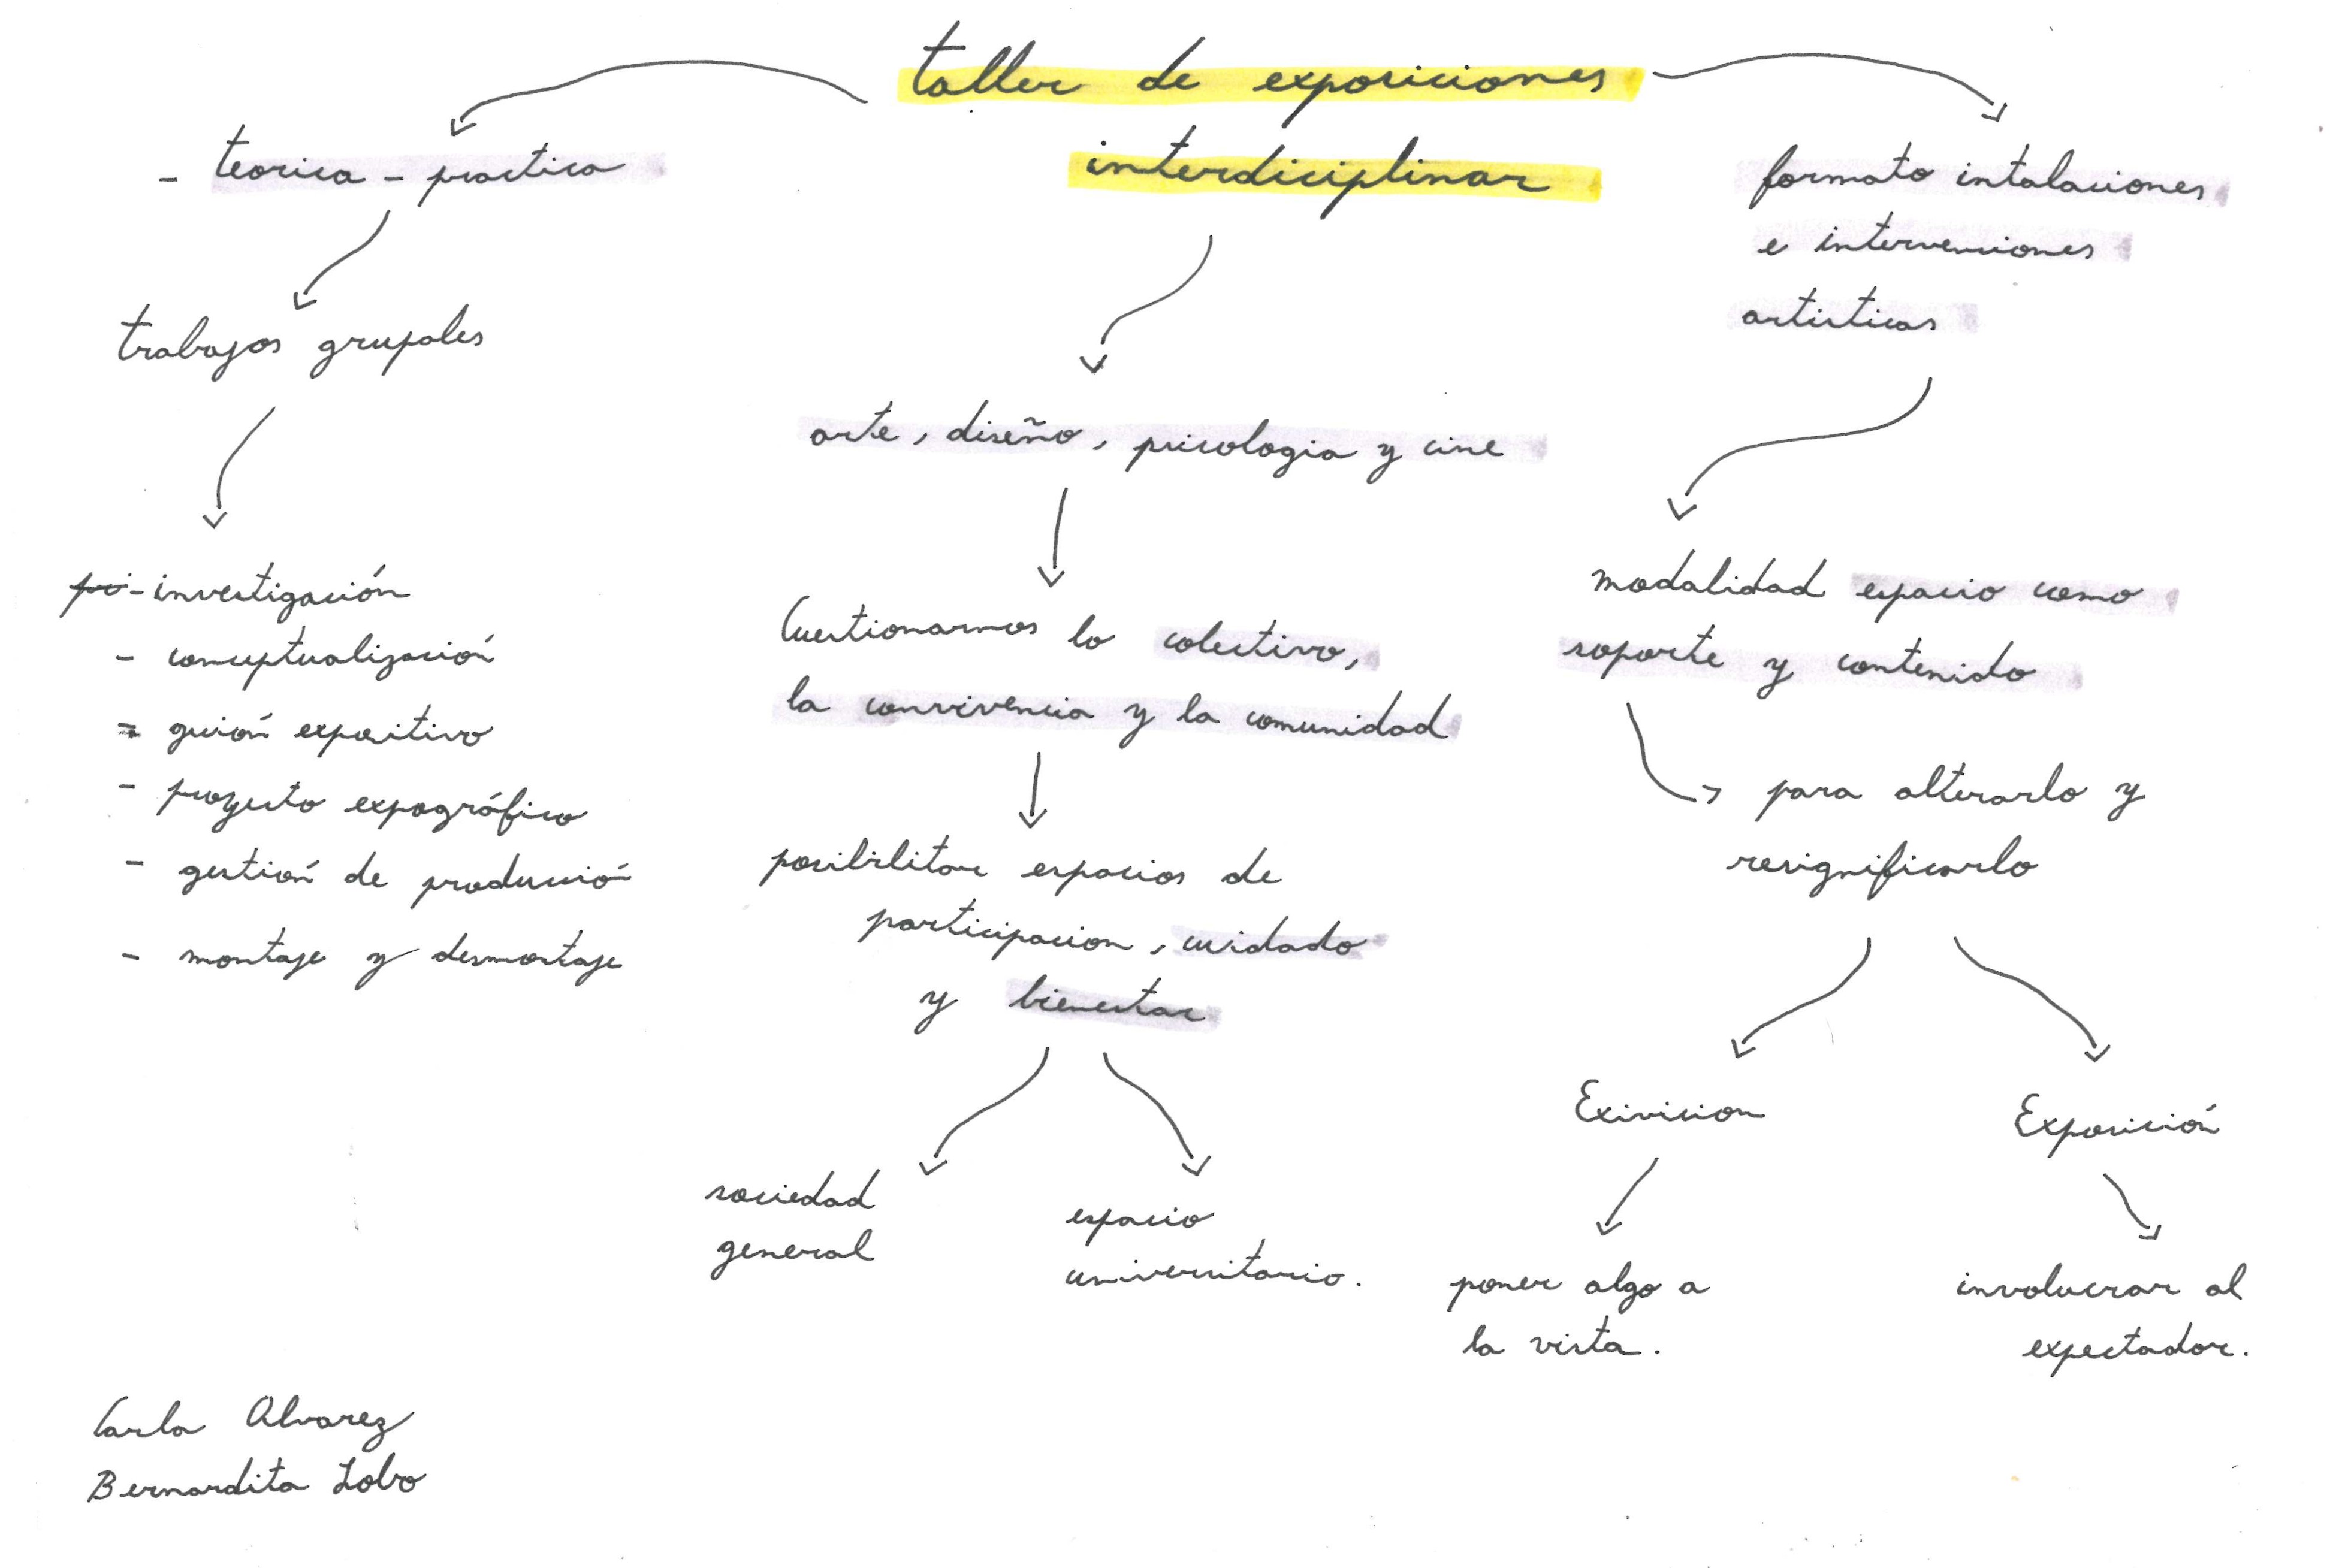 taller de exposiciones
interdiciplinar
- teorica - practica
trabajos grupales
- investigación
- conceptualización
- guión expositivo
- proyecto expográfico
- gestión de producción
- montaje y desmontaje
arte, diseño, psicologia y cine
Cuestionarnos lo colectivo,
la convivencia y la comunidad
posibilitar espacios de
participacion, cuidado
y bienestar
sociedad
general
espacio
universitario.
formato intalaciones
e intervenciones
artisticas
modalidad espacio como
soporte y contenido
para alterarlo y
resignificarlo
Exivicion
poner algo a
la vista.
Exposición
involucrar al
expectador.
Carla Alvarez
Bernardita Lobo